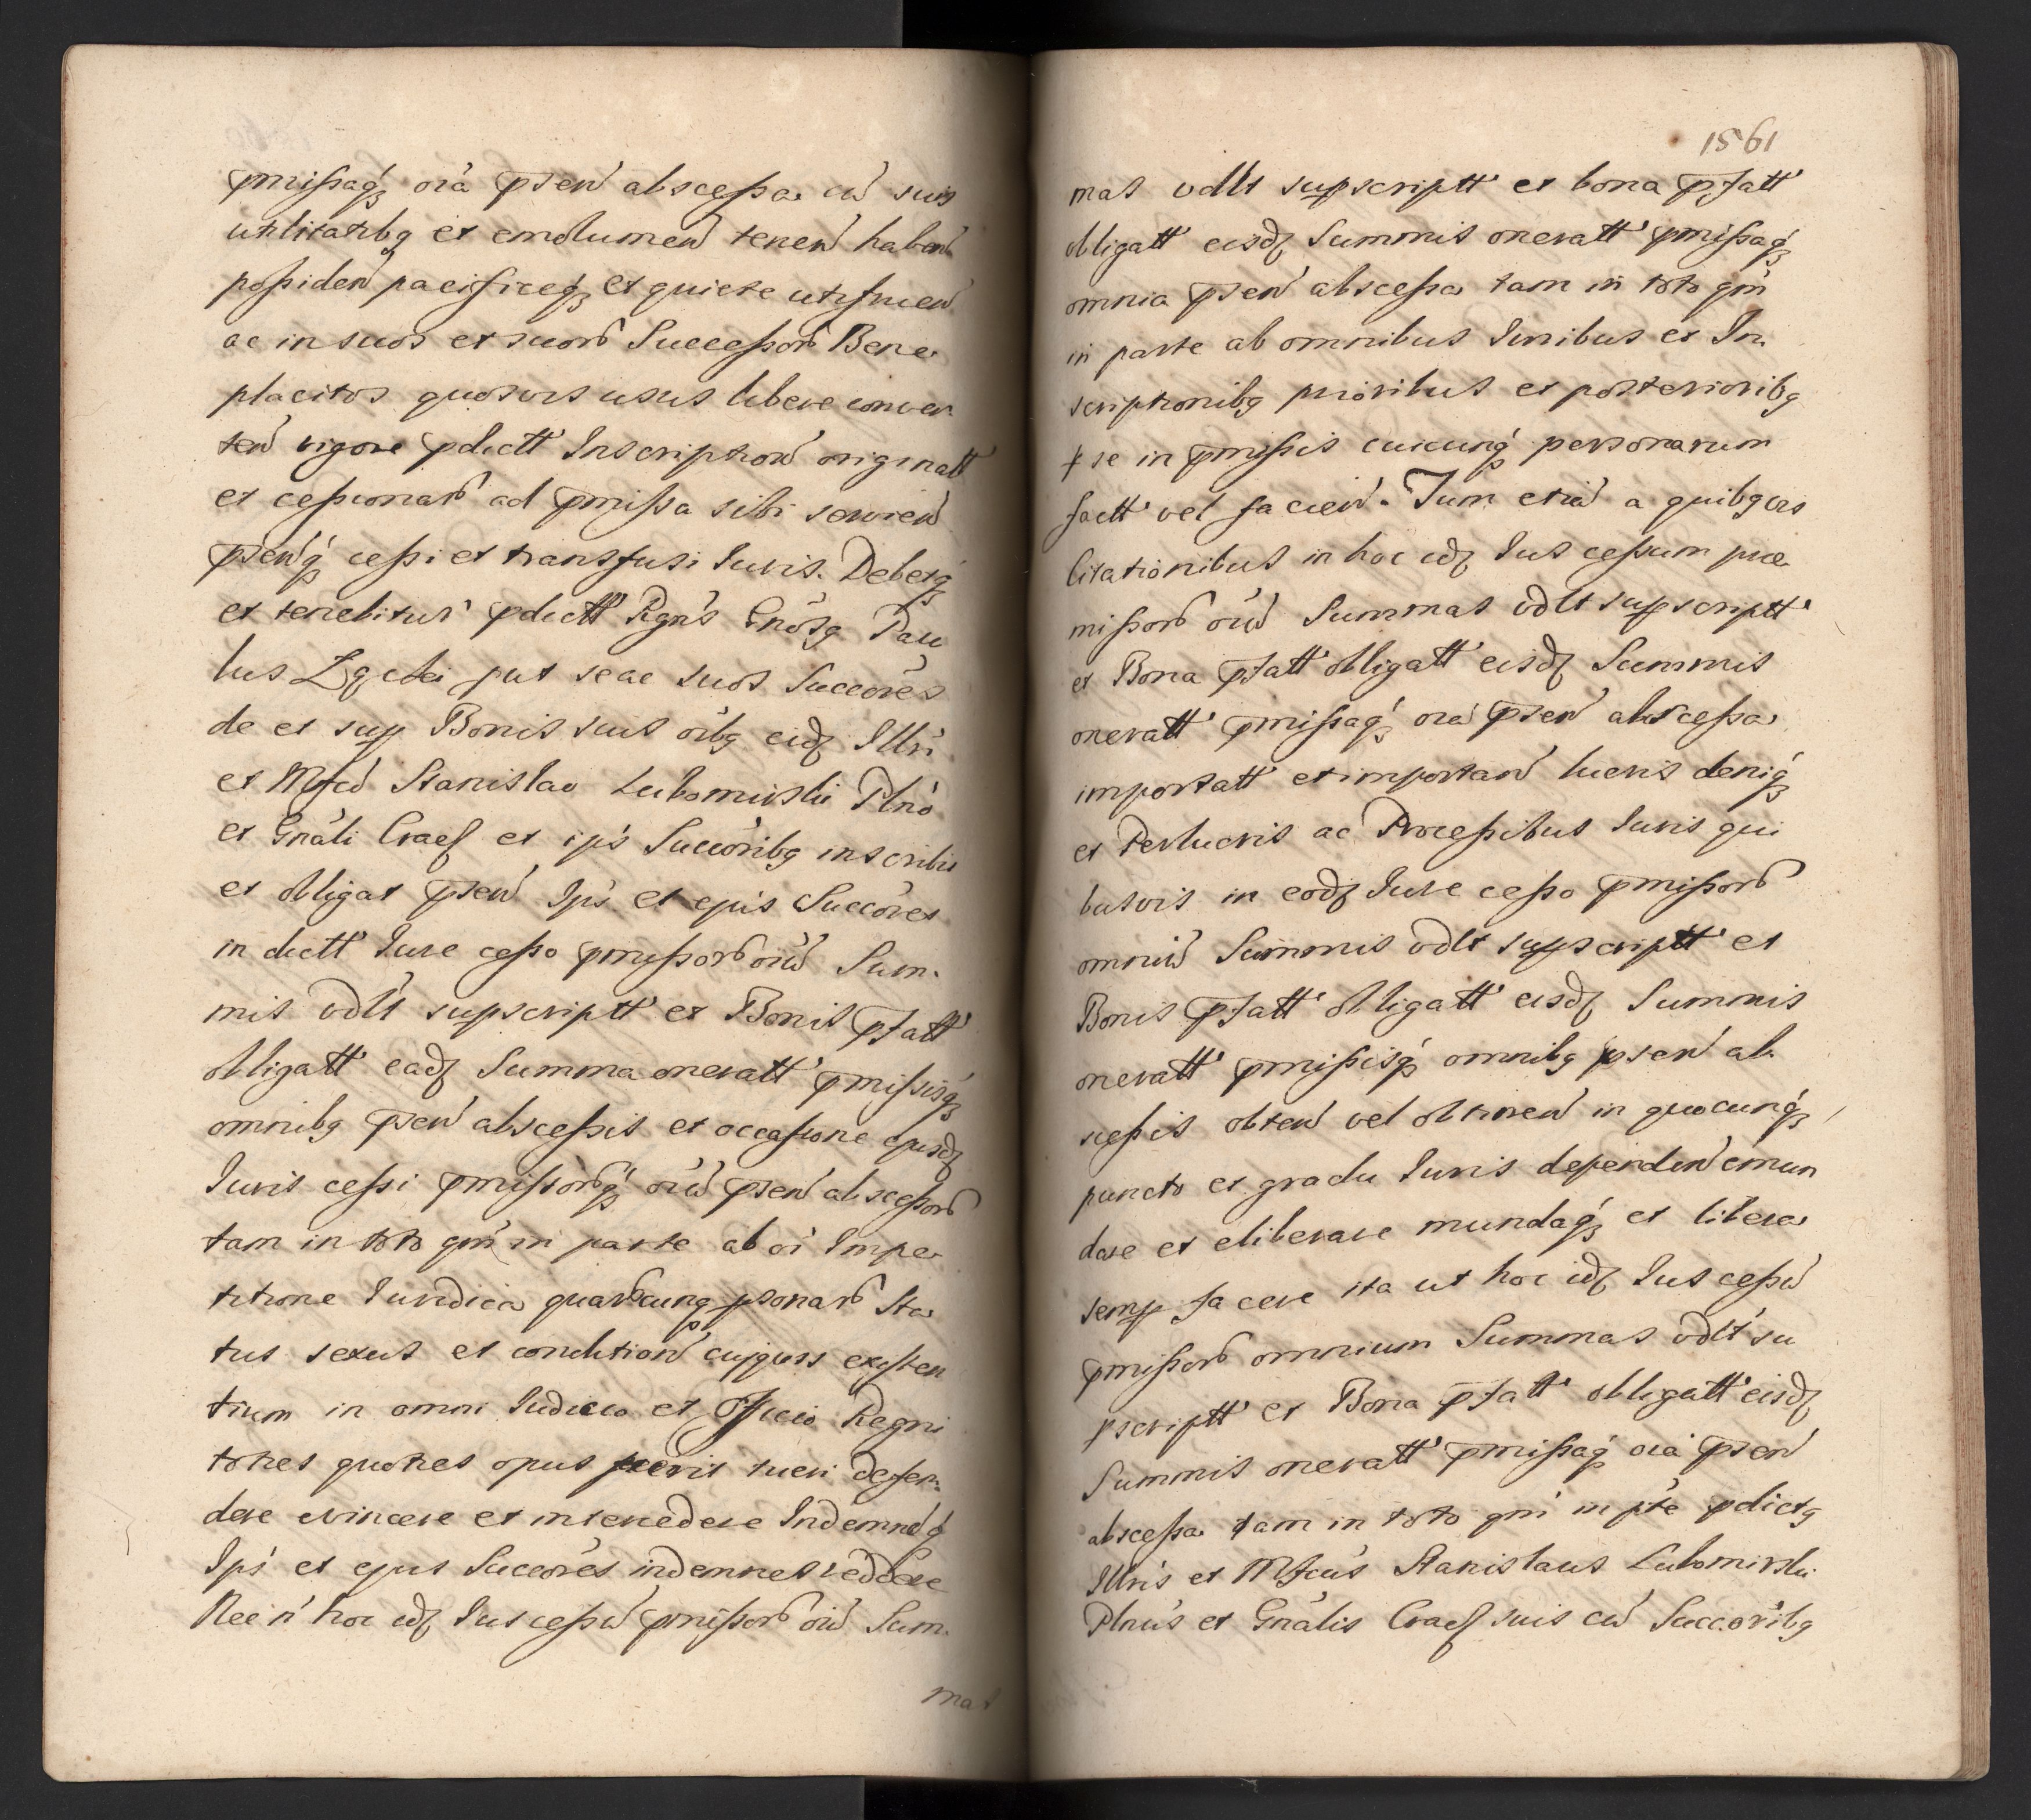 pmissaq́ꝫ oiá psen̄ abscessa cū suis
utilitatibq et emolumen̄ tenen̄ haben̄
possiden̄ pacificeq́ꝫ et quiete utifruen̄
ac in suos et suorb Successorb Bene-
placitos quosvis usus libere conver
ten̄ vigore pdictt' Inscription̄ originatt'
et cessionarb ad pmissa sibi servien̄
psenq́ꝫ cessi et transfusi Iuris. Debetq́ꝫ
et tenebitur pdictt' Rgn's Gnōsq Pau
lus put se ac suos Succōres
de et sup Bonis suis oībq eidꝫ Illri
et Mfco Stanislao Lubomirski Plnō
et Gnāli Cracꝭ et ips Succōribq inscribit
et obligat psen̄ Ips et ejus Succōres
in dictt' Iure cesso pmissorb oiū Sum-
mis vdlt supscriptt' et Bonis pfatt'
obligatt' eadꝫ Summa oneratt' pmissisq́ꝫ
omnibq psen̄ abscessis et occasione ejusdꝫ
Iuris cessi pmissorbq́ꝫ oiū psen̄ abscessorb
tam in toto qm̄ in parte ab oi Impe-
titione Iuridica quarbcunq psonarb Sta
tus sexus et condition̄ cujusvis existen
tium in omni Iudicio et Officio Regni
toties quoties opus fuerit tueri defen-
dere evincere et intercedere Indemneq́
Ips et ejus Succōres indemnes reddere
Nec n̄ hoc idꝫ Ius cessū pmissorb oiū Sum-
mas
1561
mas vdlt supscriptt' et bona pfatt'
obligatt' eisdꝫ Summis oneratt' pmissaq́ꝫ
omnia psen̄ abscessa tam in toto qm̄
in parte ab omnibus Iuribus et In-
scriptionibq prioribus et posterioribq
p se in pmissis cuicunq́ꝫ personarum
factt' vel facien̄. Tum etiā a quibqvis
litationibus in hoc idꝫ Ius cessum prae-
missorb oiū Summas vdlt supscriptt'
et Bona pfatt' obligatt' eisdꝫ Summis
oneratt' pmissaq́ꝫ oia psen̄ abscessa
importatt' et importan̄ lucris deniq́ꝫ
et Perlucris ac Processibus Iuris qui
busvis in eodꝫ Iure cesso pmissorb
omniū Summis vdlt supscriptt' et
Bonis pfatt' obligatt' eisdꝫ Summis
oneratt' pmissisq́ꝫ omnibq psen̄ ab-
scessis obten̄ vel obtinen̄ in quocunq́ꝫ
puncto et gradu Iuris dependen̄ emun
dare et eliberare mundaq́ꝫ et libera
semp facere ita ut hoc idꝫ Ius cessū
pmissorb omnium Summas vdlt su
pscriptt' et Bona pfatt' obligatt' eisdꝫ
Summis oneratt' pmissaq́ꝫ oiā psen̄
abscessa tam in toto qm̄ in pte pdictq
Illris et Mfcus Stanislaus Lubomirski
Plnus et Gnālis Cracꝭ suis cū Succ.ōribq